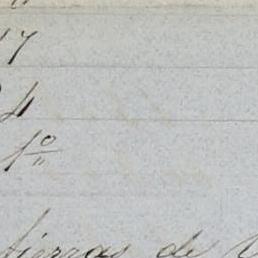 17
4
1º
tierras de